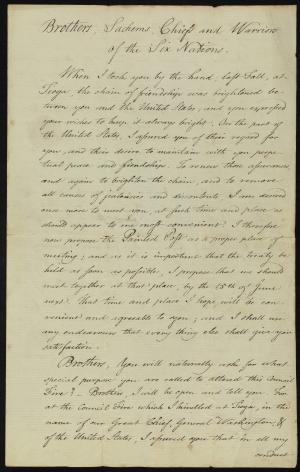 Brothers, Sachems, Chiefs and Warriors
of the Six Nations.
When I took you by the hand, last Fall, at
Tioga, the chain of friendship was brightened be-
tween you and the United States, and you expressed
your wishes to keep it always bright. On the part of
the United States, I assured you of their regard for
you, and their desire to maintain with you perpe-
tual peace and friendship. To renew those assurances
and again to brighten the chain, and to remove
all causes of jealousies and discontents I am desired
once more to meet you, at such time and place as
should appear to me most convenient. I therefore
now propose the Painted Post as a proper place of
meeting; and as it is important that the treaty be
held as soon as possible, I propose that we should
meet together at that place, by the 15th of June
next. That time and place I hope, will be con-
venient and agreeable to you; and I shall use
my endeavours that every thing else shall give you
satisfaction.
Brothers, You will naturally ask for what
special purpose you are called to attend this Council
Fire? Brothers, I will be open and tell you. For
at the Council Fire which I kindled at Tioga, in the
name of our Great Chief, General Washington, &
of the United States, I assured you that in all my
conduct